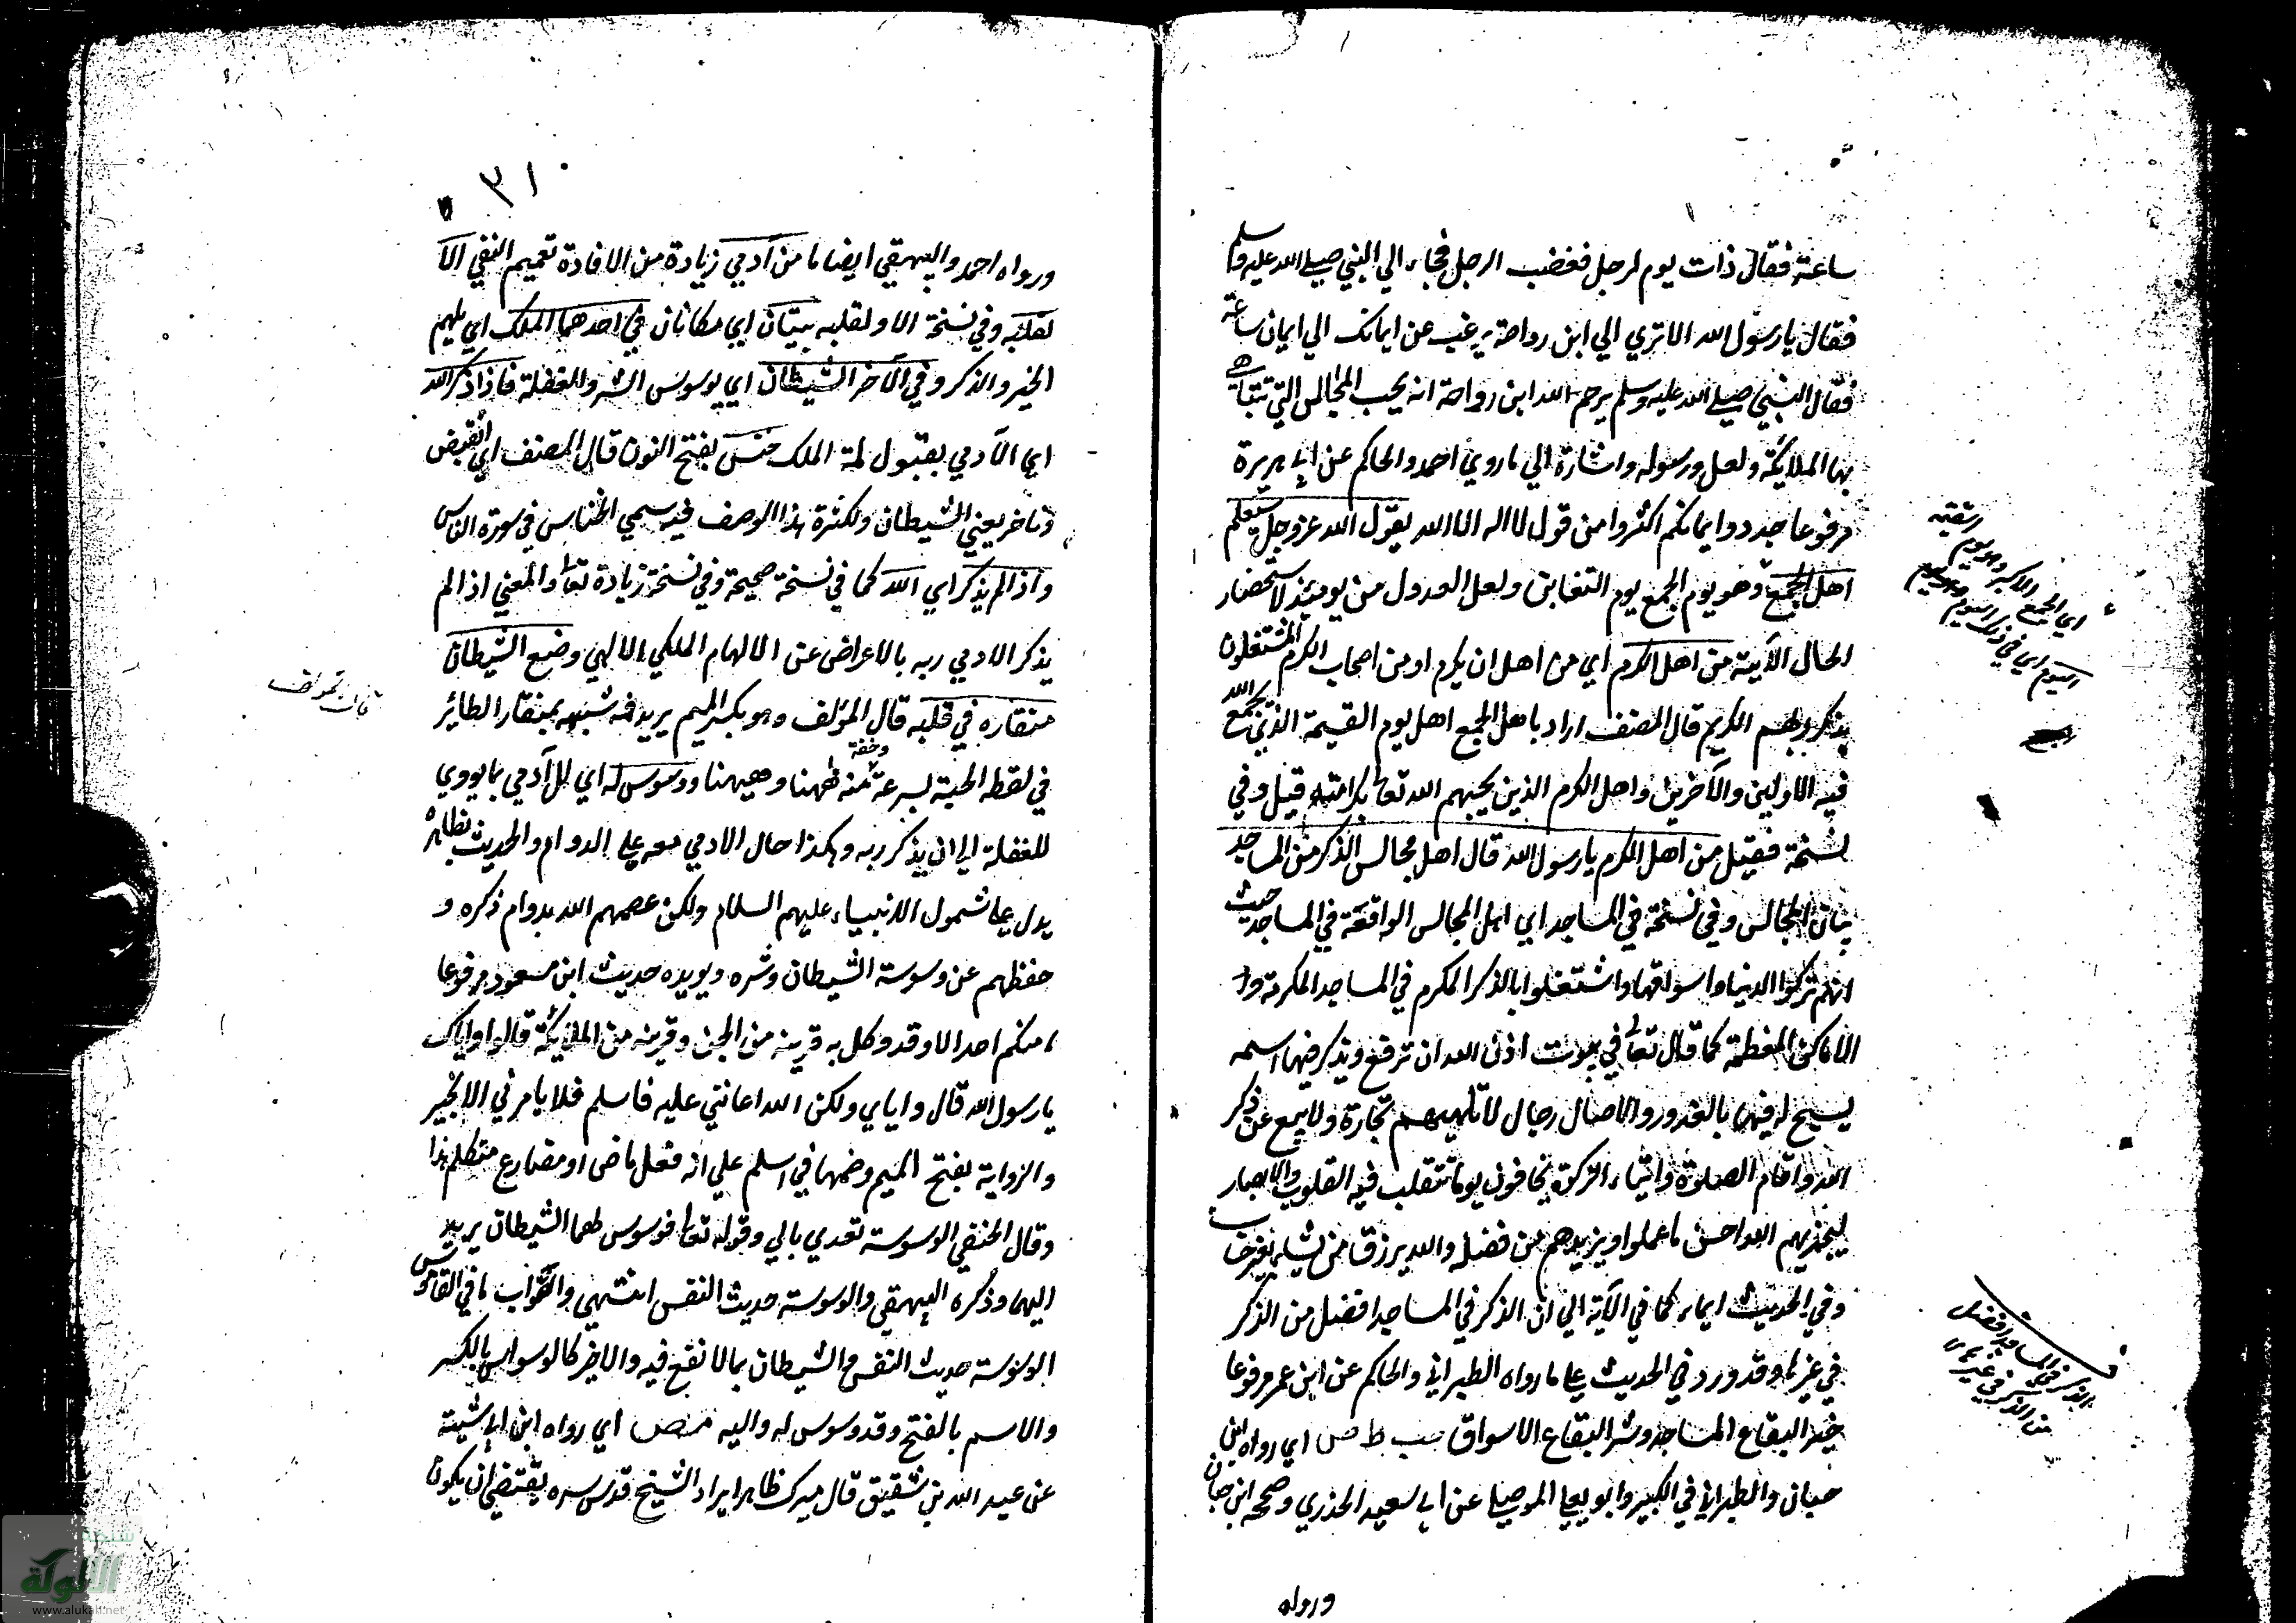 ساعة فقال ذات يوم لرجل فغضب الرجل فجاء الي النبي صلي الله عليه وسلم
فقال يا رسول الله الا تري الي ابن رواحة يرغب عن ايمانك الي ايمان ساعة
فقال النبي صلي الله عليه وسلم يرحم الله ابن رواحة انه يحب المجالس التي تتباهي
بها الملائكة ولعل ورسوله واشارة الي ما روي احمد والحاكم عن ابي هريرة
مرفوعا جددوا ايمانكم اكثروا من قول لا اله الا الله يقول الله عز وجل سيعلم
اهل الجمع وهو يوم الجمع يوم التغابن ولعل العدول من يومئذ لاستحضار
الحال الآتية من اهل الكرم اي من اهل ان يكرم او من اصحاب الكرم المشتغلون
بذكر ربهم الكريم قال المصنف اراد باهل الجمع اهل يوم القيمة الذي يجمع الله
فيه الاولين والآخرين واهل الكرم الذين يحبهم الله تعا بكرامته قيل وفي
نسخة فقيل من اهل الكرم يا رسول الله قال اهل مجالس الذكر من المساجد
بيان المجالس وفي نسخة في المساجد اي اهل المجالس الواقعة في المساجد حيث
انهم تركوا الدنيا واسواقها واشتغلوا بالذكر المكرم في المساجد المكرمة و
الاماكن المعظمة كما قال تعا في بيوت اذن الله ان ترفع ويذكر فيها اسمه
يسبح له فيها بالغدو والاصال رجال لا تلهيهم تجارة ولا بيع عن ذكر
الله واقام الصلوة وايتاء الزكوة يخافون يوما تتقلب فيه القلوب والابصار
ليجزيهم الله احسن ما عملوا ويزيدهم من فضله والله يرزق من يشاء بغير حساب
وفي الحديث ايماء كما في الآية الي ان الذكر في المساجد افضل من الذكر
في غيرها وقد ورد في الحديث علي ما رواه الطبراني والحاكم عن ابن عمر مرفوعا
خير البقاع المساجد وشر البقاع الاسواق حب ط ص اي رواه ابن
حبان والطبراني في الكبير وابو يعلي الموصلي عن ابي سعيد الخدري وصححه ابن حبان
ورواه
الذكر في المساجد افضل
من الذكر في غيرها
٣١٠
ورواه احمد والبيهقي ايضا ما من آدمي زيادة من الافادة تعميم النفي الا
لقلبه وفي نسخة الا ولقلبه بيتان اي مكانان في احدهما الملك اي يلهم
الخير والذكر وفي الآخر الشيطان اي يوسوس الشر والغفلة فاذا ذكر الله
اي الآدمي بقبول لمة الملك خنس بفتح النون قال المصنف اي انقبض
وتاخر يعني الشيطان ولكثرة هذا الوصف فيه سمي الخناس في سورة الناس
واذا لم يذكر اي الله كما في نسخة صحيحة وفي نسخة زيادة تعا والمعني اذا لم
يذكر الادمي ربه بالاعراض عن الالهام الملكي الالهي وضع الشيطان
منقاره في قلبه قال المؤلف وهو بكسر الميم يريد فمه شبهه بمنقار الطائر
في لقطه الحبة بسرعة وخفة منه ههنا وههنا ووسوس له اي للآدمي بما يودي
للغفلة الي ان يذكر ربه وهكذا حال الادمي معه علي الدوام والحديث بظاهره
يدل علي شمول الانبياء عليهم السلام ولكن عصمهم الله بدوام ذكره و
حفظهم عن وسوسة الشيطان وشره ويويده حديث ابن مسعود مرفوعا
ما منكم احد الا وقد وكل به قرينه من الجن وقرينه من الملائكة قالوا واياك
يا رسول الله قال واياي ولكن الله اعانني عليه فاسلم فلا يامرني الا بخير
والرواية بفتح الميم وضمها في اسلم علي انه فعل ماضي او مضارع متكلم هذا
وقال الحنفي الوسوسة تعدي بالي وقوله تعا فوسوس لهما الشيطان يريد
اليهما وذكره البيهقي والوسوسة حديث النفس انتهي والصواب ما في القاموس
الوسوسة حديث النفس والشيطان بما لا نفع فيه ولا خير كالوسواس بالكسر
والاسم بالفتح وقد وسوس له واليه مص اي رواه ابن ابي شيبة
عن عبد الله بن شقيق قال ميرك ظاهر ايراد الشيخ قدس سره يقتضي ان يكون
شبكة
الألوكة
www.alukah.net